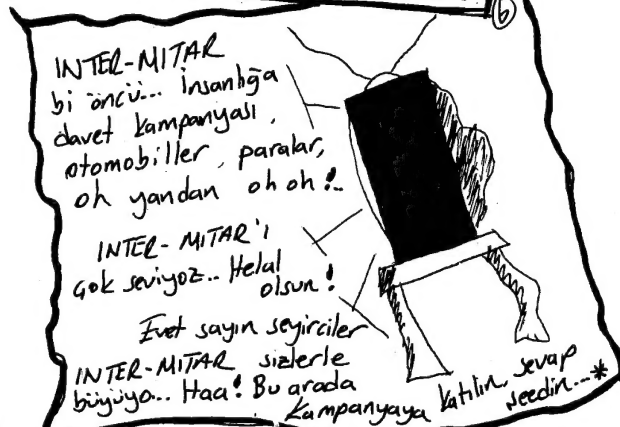 6
INTER-MITAR
bi öncü... İnsanlığa
davet kampanyası,
otomobiller, paralar,
oh yandan oh oh!..
INTER-MITAR'ı
çok seviyoz.. Helal
olsun!
Evet sayın seyirciler
INTER-MITAR sizlerle
büyüyo... Haa! Bu arada
kampanyaya katılın, sevap
seedin...*